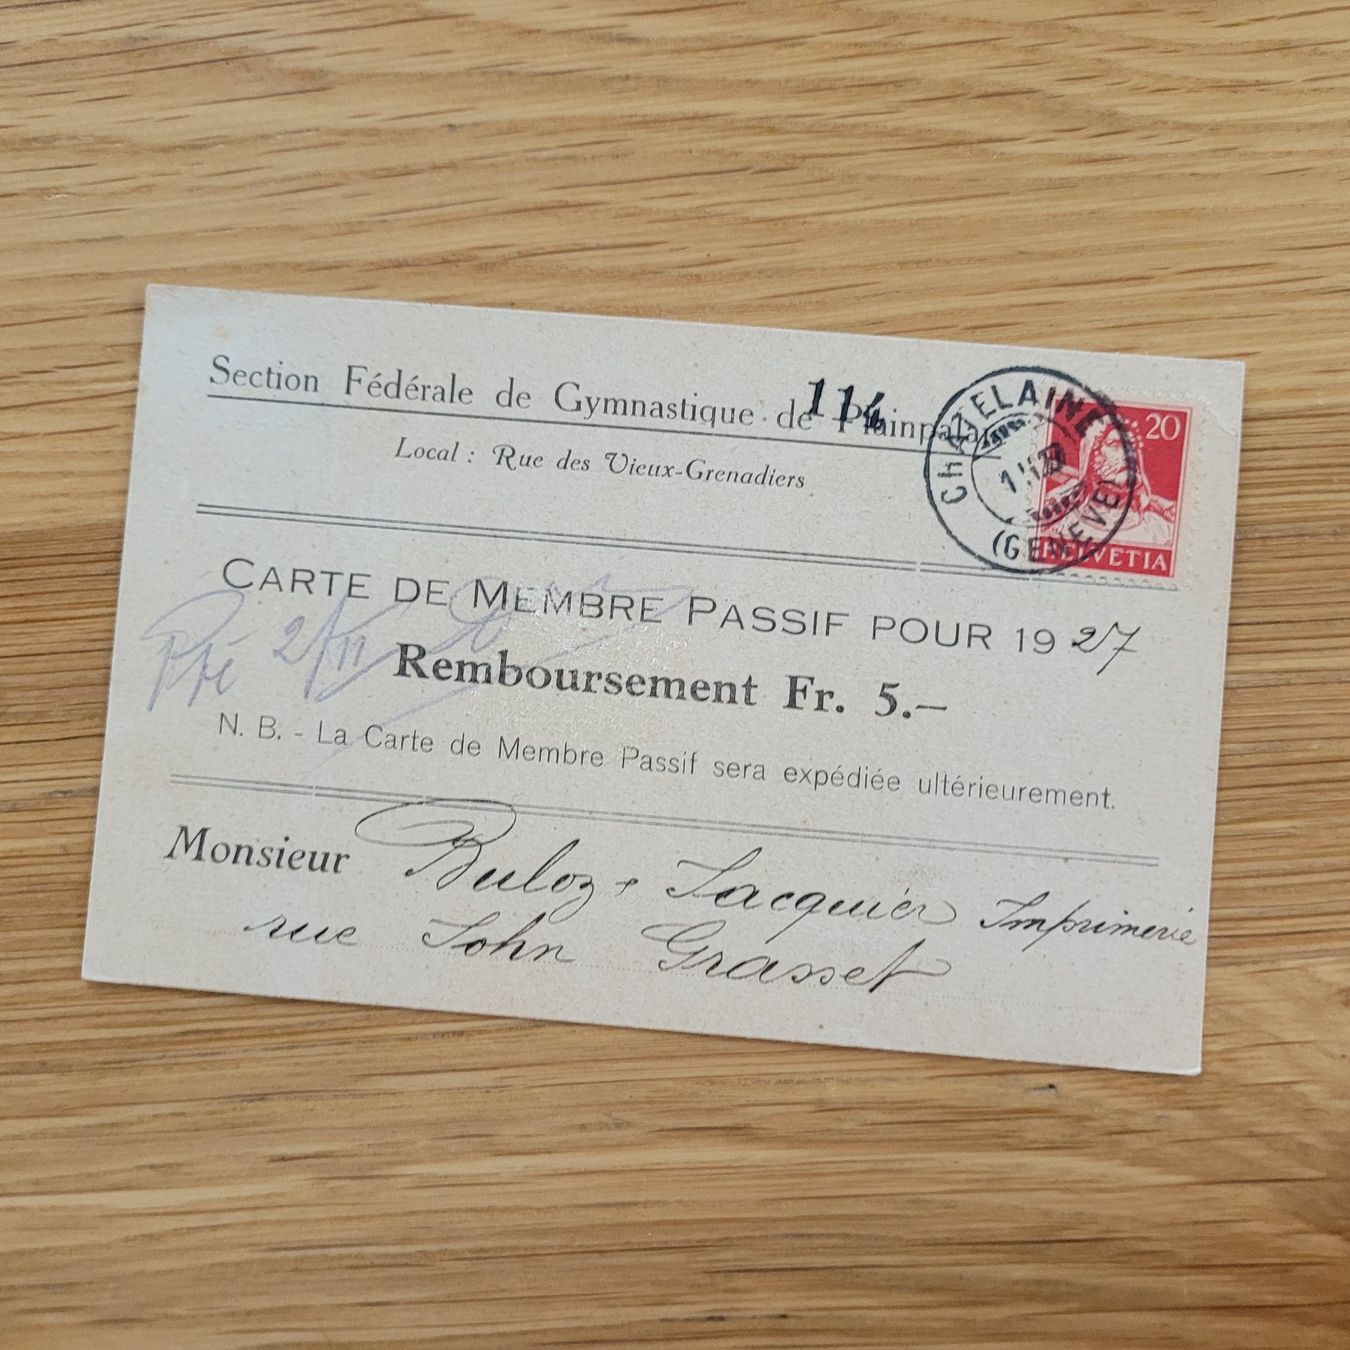 Section Fédérale de Gymnastique de Plainpalais
114
Local : Rue des Vieux-Grenadiers
CHATELAINE
(GENÈVE)
20
HELVETIA
CARTE DE MEMBRE PASSIF POUR 1927
Remboursement Fr. 5.—
N. B. - La Carte de Membre Passif sera expédiée ultérieurement.
Monsieur Buloz & Jacquier Imprimerie
rue John Grasset